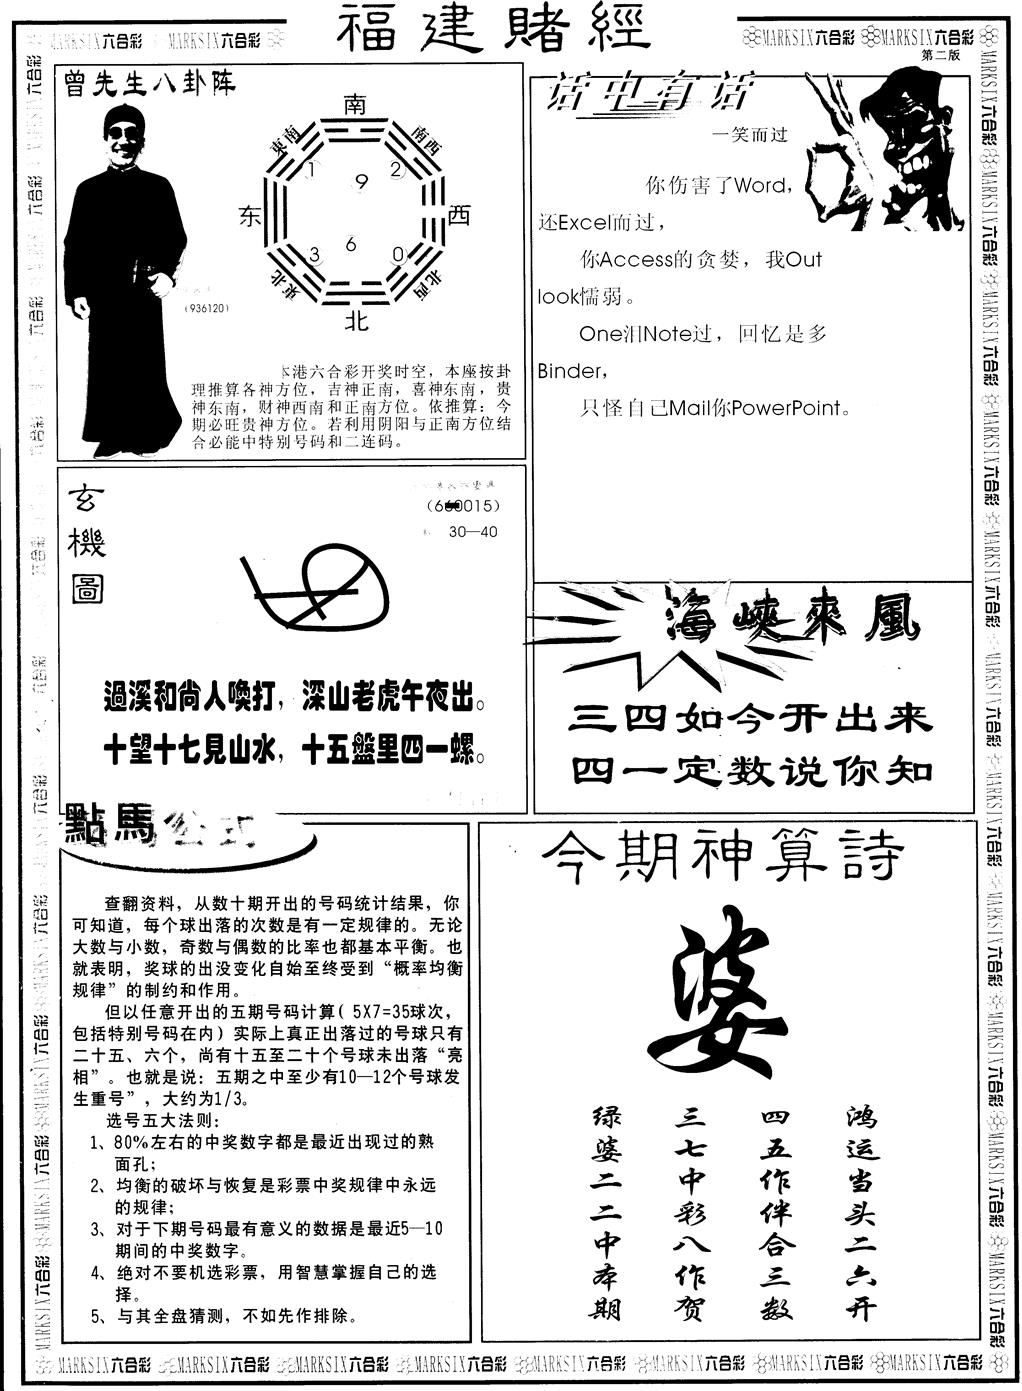 福建賭經
MARKSIX六合彩 MARKSIX六合彩
MARKSIX六合彩 MARKSIX六合彩
第二版
曾先生八卦阵
南
東南
南西
1
9
2
东
西
3
6
0
東北
北西
北
(936120)
本港六合彩开奖时空，本座按卦
理推算各神方位，吉神正南，喜神东南，贵
神东南，财神西南和正南方位。依推算：今
期必旺贵神方位。若利用阴阳与正南方位结
合必能中特别号码和二连码。
话中有话
一笑而过
你伤害了Word，
还Excel而过，
你Access的贪婪，我Out
look懦弱。
One泪Note过，回忆是多
Binder，
只怪自己Mail你PowerPoint。
玄
機
圖
30—40
過溪和尚人喚打，深山老虎午夜出。
十望十七見山水，十五盤里四一螺。
海峽來風
三四如今开出来
四一定数说你知
點馬公式
查翻资料，从数十期开出的号码统计结果，你
可知道，每个球出落的次数是有一定规律的。无论
大数与小数，奇数与偶数的比率也都基本平衡。也
就表明，奖球的出没变化自始至终受到“概率均衡
规律”的制约和作用。
但以任意开出的五期号码计算( 5X7=35球次，
包括特别号码在内）实际上真正出落过的号球只有
二十五、六个，尚有十五至二十个号球未出落“亮
相”。也就是说：五期之中至少有10—12个号球发
生重号”，大约为1/3。
选号五大法则：
1、80%左右的中奖数字都是最近出现过的熟
面孔；
2、均衡的破坏与恢复是彩票中奖规律中永远
的规律；
3、对于下期号码最有意义的数据是最近5—10
期间的中奖数字。
4、绝对不要机选彩票，用智慧掌握自己的选
择。
5、与其全盘猜测，不如先作排除。
今期神算詩
婆
鸿运当头二六开
四五作伴合三数
三七中彩八作贺
绿婆二二中本期
MARKSIX六合彩 MARKSIX六合彩 MARKSIX六合彩 MARKSIX六合彩 MARKSIX六合彩 MARKSIX六合彩 MARKSIX六合彩 MARKSIX六合彩